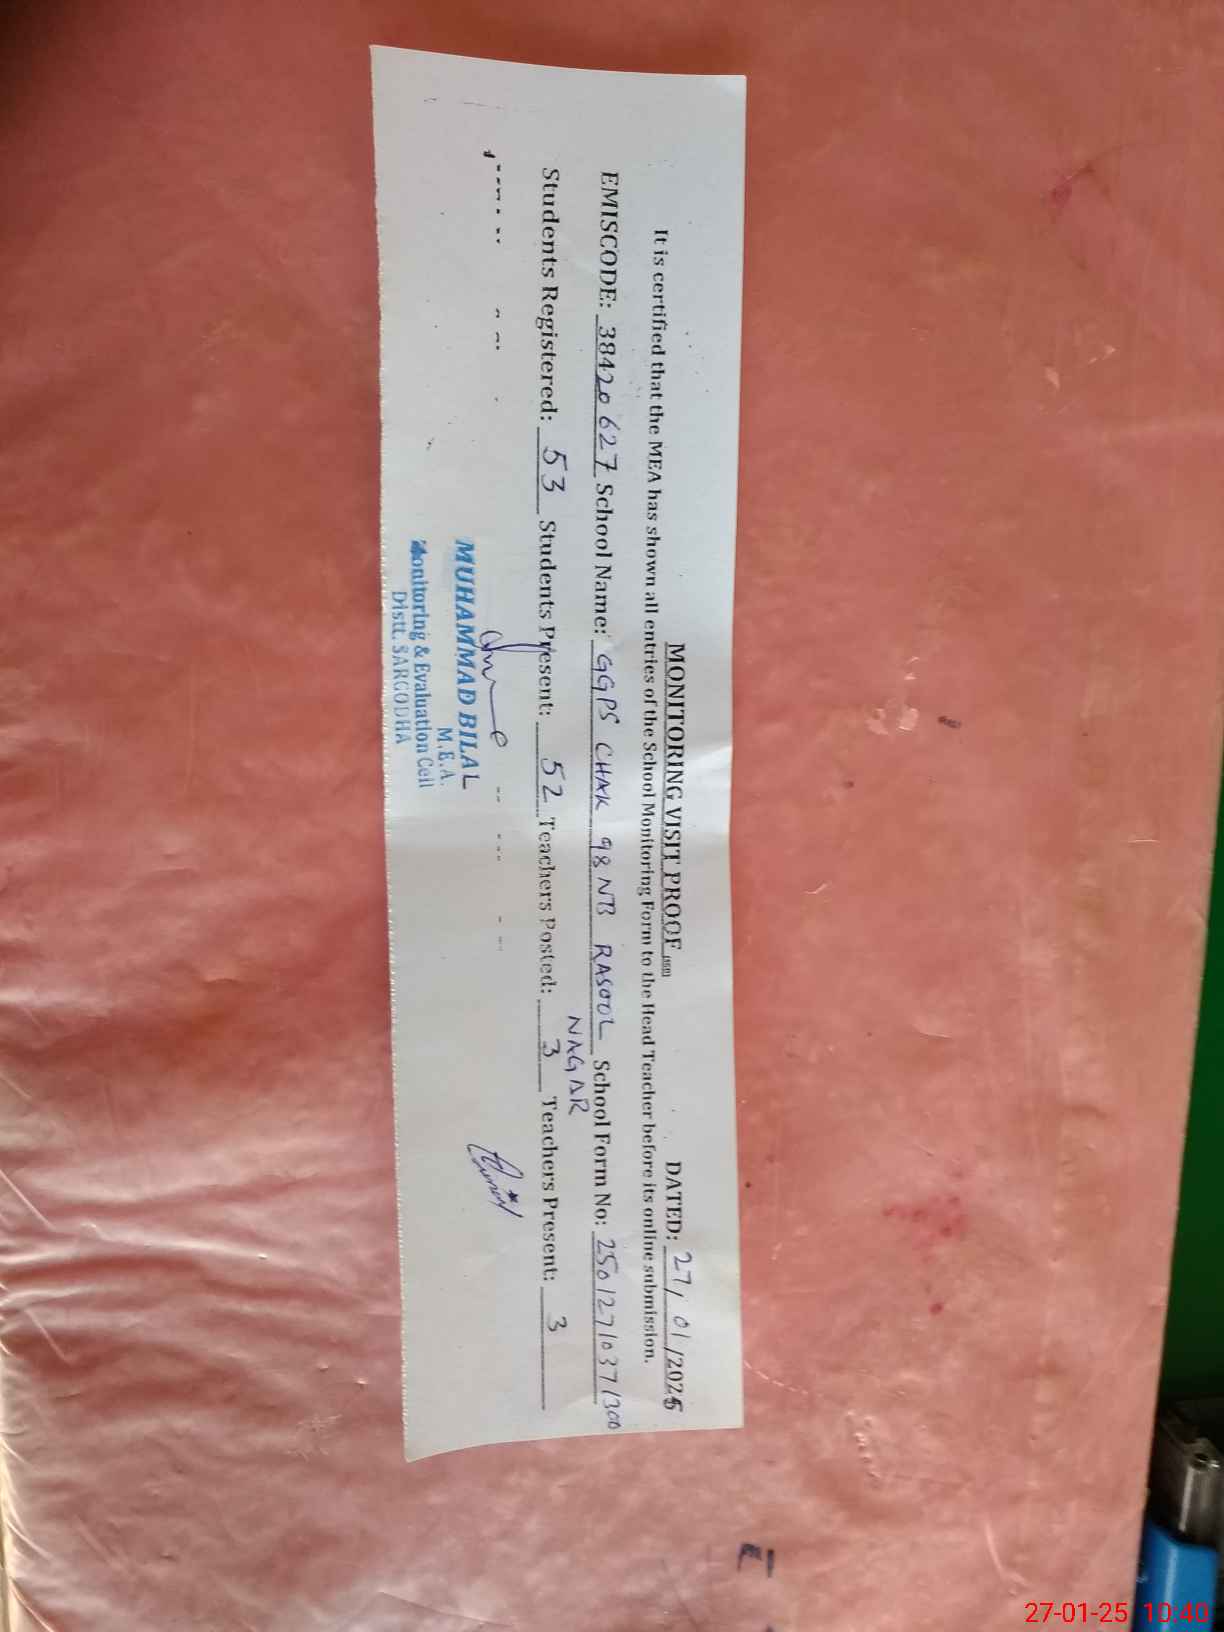 MONITORING VISIT PROOF DATED: 27/01/2025
It is certified that the MEA has shown all entries of the School Monitoring Form to the Head Teacher before its online submission.
EMISCODE: 38420627 School Name: GGPS CHAK 98 NB RASOOL School Form No: 25012710371300
NAGAR
Students Registered: 53 Students Present: 52 Teachers Posted: 3 Teachers Present: 3
MUHAMMAD BILAL
M.E.A.
Monitoring & Evaluation Cell
Distt. SARGODHA
27-01-25 10:40